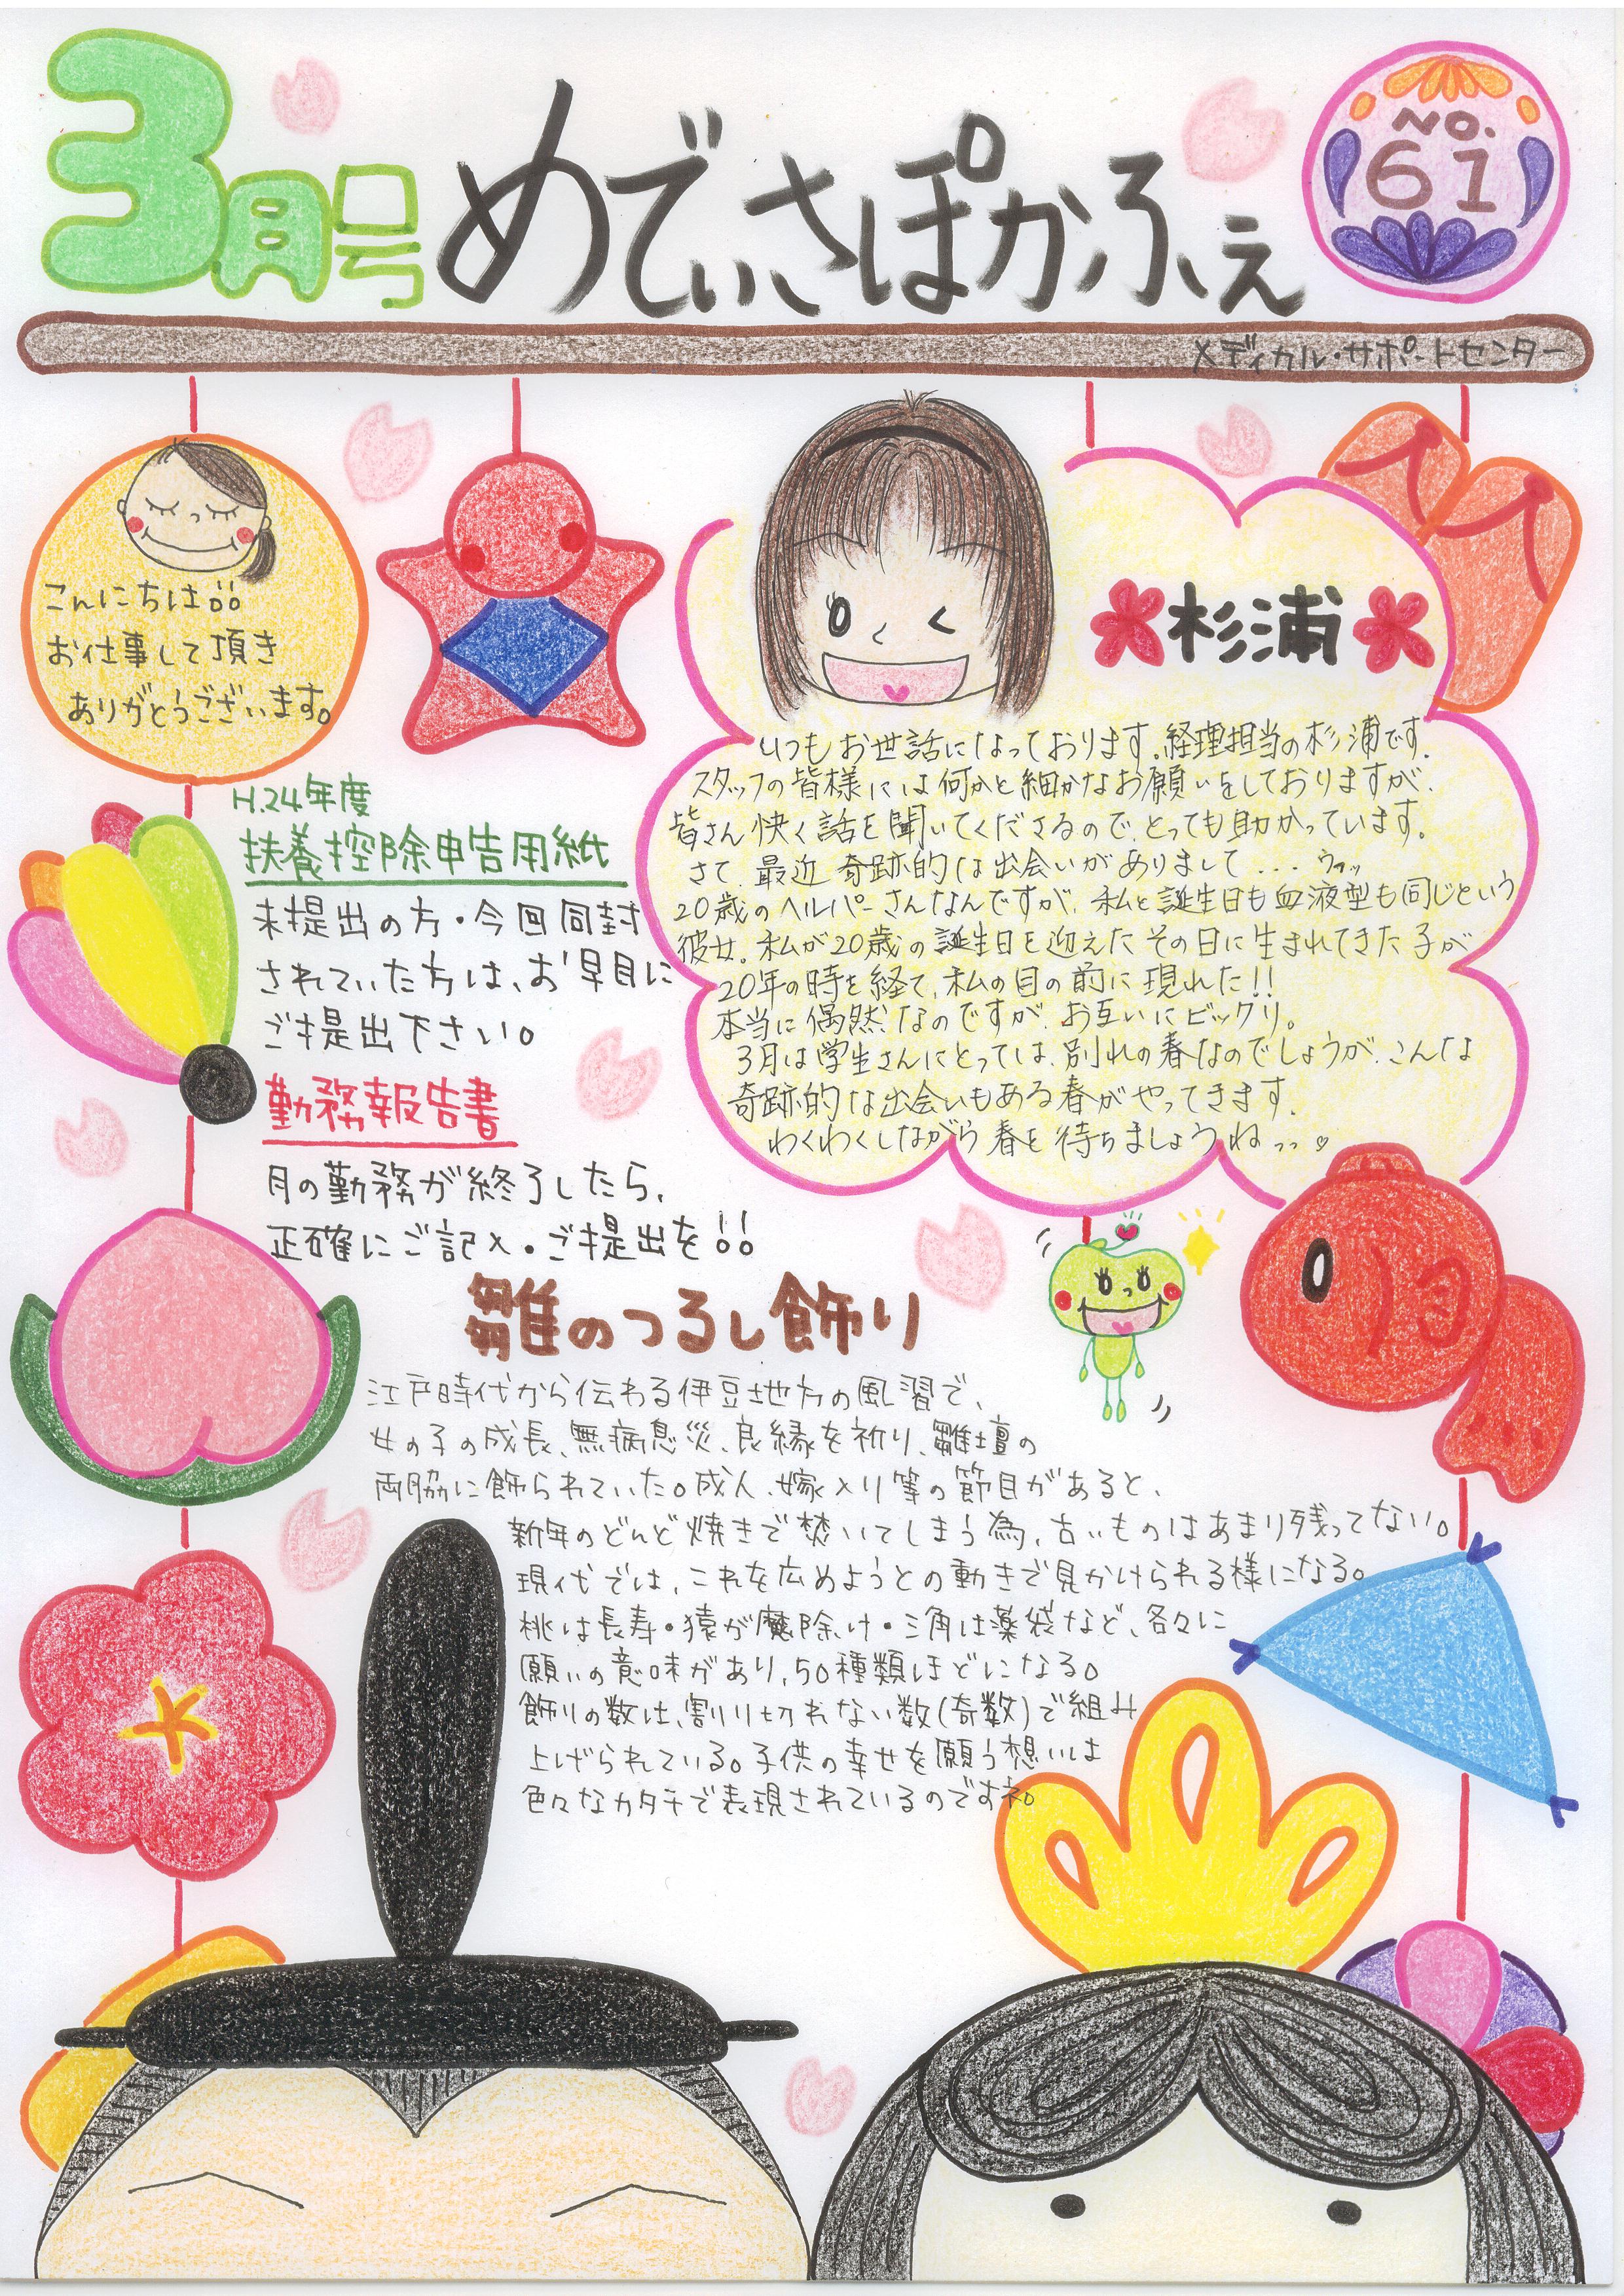 3月号
めでぃさぽかふぇ
No.
61
メディカル・サポートセンター
こんにちは!!
お仕事して頂き
ありがとうございます。
H.24年度
扶養控除申告用紙
未提出の方・今回同封
されていた方は、お早目に
ご提出下さい。
勤務報告書
月の勤務が終了したら、
正確にご記入・ご提出を!!
杉浦
いつもお世話になっております。経理担当の杉浦です。
スタッフの皆様には何かと細かなお願いをしておりますが、
皆さん快く話を聞いてくださるので、とっても助かっています。
さて、最近奇跡的な出会いがありまして...ウフッ
20歳のヘルパーさんなんですが、私と誕生日も血液型も同じという
彼女。私が20歳の誕生日を迎えたその日に生まれてきた子が
20年の時を経て、私の目の前に現れた!!
本当に偶然なのですが、お互いにビックリ。
3月は学生さんにとっては、別れの春なのでしょうが、こんな
奇跡的な出会いもある春がやってきます。
わくわくしながら春を待ちましょうねっっ♡
雛のつるし飾り
江戸時代から伝わる伊豆地方の風習で、
女の子の成長、無病息災、良縁を祈り、雛壇の
両脇に飾られていた。成人、嫁入り等の節目があると、
新年のどんど焼きで焚いてしまう為、古いものはあまり残ってない。
現代では、これを広めようとの動きで見かけられる様になる。
桃は長寿・猿が魔除け・三角は薬袋など、各々に
願いの意味があり、50種類ほどになる。
飾りの数は、割り切れない数(奇数)で組み
上げられている。子供の幸せを願う想いは
色々なカタチで表現されているのですネ。